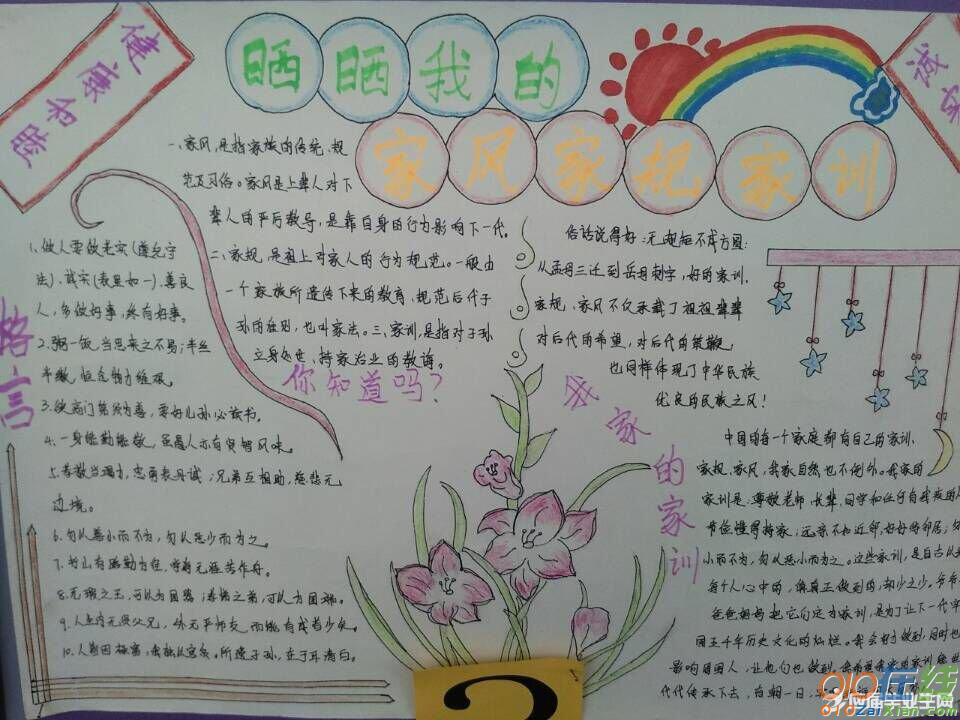 健康和睦
诚实
晒晒我的
家风家规家训
一、家风,是指家族的传统、规
范及习俗。家风是上辈人对下
辈人的严厉教导,是靠自身的行为影响下一代。
二、家规,是祖上对家人的行为规范。一般由
一个家族所遗传下来的教育、规范后代子
孙的准则,也叫家法。三、家训,是指对子孙
立身处世、持家治业的教诲。
你知道吗?
格言
1、做人要做老实(遵纪守
法)、诚实(表里如一)、善良
人,多做好事,终有好事。
2、粥一饭,当思来之不易;半丝
半缕,恒念物力维艰。
3、欲高门第须为善,要好儿孙必读书。
4、一身能勤能敬,虽愚人亦有贤智风味。
5、孝敬当竭力,忠勇表丹诚;兄弟互相助,慈悲无
边境。
6、勿以善小而不为,勿以恶少而为之。
7、书山有路勤为径,学海无涯苦作舟。
8、无瑕之玉,可以为国器;孝悌之家,可以为国瑞。
9、人生内无贤父兄,外无严师友,而能有成者少矣。
10、
所遗子孙,在于清白。
俗话说得好:无规矩不成方圆:
从孟母三迁到岳母刺字,好的家训、
家规、家风不仅承载了祖祖辈辈
对后代的希望,对后代的鞭策,
也同样体现了中华民族
优良的民族之风!
我家的家训
中国的每一个家庭都有自己的家训、
家规、家风,我家自然也不例外。我家的
家训是:尊敬老师、长辈、同学和任何自我
节俭懂得持家;远亲不如近邻,好好待邻居;
小而不为,勿以恶小而为之。这些家训,是自古以来
每个人心中的,但真正做到的,却少之少。爷爷
爸爸妈妈把它们定为家训,是为了让下一代
国五千年历史文化的灿烂。我会努力做到,同时也
影响周围人,让他们也做到。
代代传承下去,自朝一日,
?
910在线
910ZaiXian.com
应届毕业生网